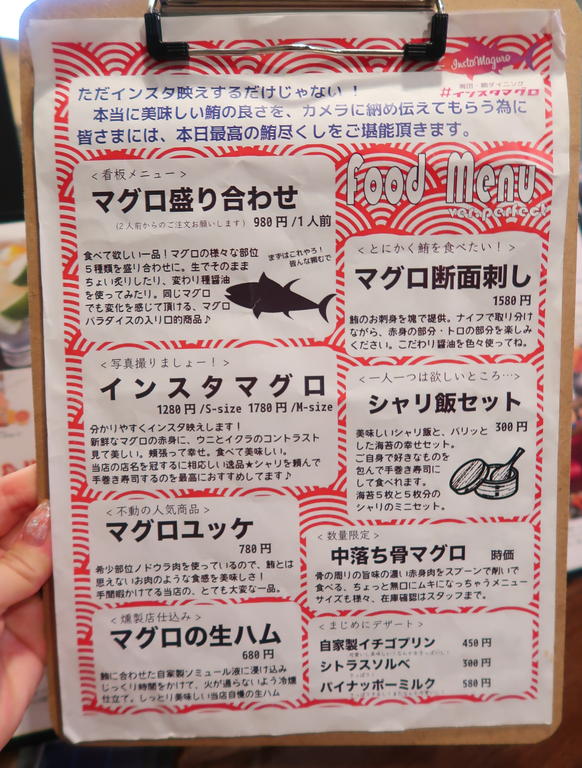 InstaMaguro
梅田・鮪ダイニング
#インスタマグロ
ただインスタ映えするだけじゃない！
本当に美味しい鮪の良さを、カメラに納め伝えてもらう為に
皆さまには、本日最高の鮪尽くしをご堪能頂きます。
Food Menu
ver.perfect
＜看板メニュー＞
マグロ盛り合わせ
(2人前からのご注文お願いします) 980円/1人前
食べて欲しい一品！マグロの様々な部位
5種類を盛り合わせに。生でそのまま
ちょい炙りしたり、変わり種醤油
を使ってみたり。同じマグロ
でも変化を感じて頂ける、マグロ
パラダイスの入り口的商品♪
まずはこれやろ！
皆んな頼むで
＜とにかく鮪を食べたい！＞
マグロ断面刺し
1580円
鮪のお刺身を塊で提供。ナイフで取り分け
ながら、赤身の部分・トロの部分を楽しみ
ください。こだわり醤油を色々使ってね。
＜写真撮りましょー！＞
インスタマグロ
1280円/S-size 1780円/M-size
分かりやすくインスタ映えします！
新鮮なマグロの赤身に、ウニとイクラのコントラスト
見て美しい。頬張って幸せ。食べて美味しい。
当店の店名を冠するに相応しい逸品★シャリを頼んで
手巻き寿司するのを最高におすすめしてます♪
＜一人一つは欲しいところ…＞
シャリ飯セット
300円
美味しいシャリ飯と、パリッと
した海苔の幸せセット。
ご自身で好きなものを
包んで手巻き寿司に
して食べれます。
海苔5枚と5枚分の
シャリのミニセット。
＜不動の人気商品＞
マグロユッケ
780円
希少部位ノドウラ肉を使っているので、鮪とは
思えないお肉のような食感を美味しさ！
手間暇かけてる当店の、とても大変な一品。
＜数量限定＞
中落ち骨マグロ 時価
骨の周りの旨味の濃い赤身肉をスプーンで削いで
食べる、ちょっと無口にムキになっちゃうメニュー
サイズも様々、在庫確認はスタッフまで。
＜燻製店仕込み＞
マグロの生ハム
680円
鮪に合わせた自家製ソミュール液に浸け込み
じっくり時間をかけて、火が通らないよう冷燻
仕立て。しっとり美味しい当店自慢の生ハム
＜まじめにデザート＞
自家製イチゴプリン 450円
シトラスソルベ 300円
パイナッポーミルク 580円